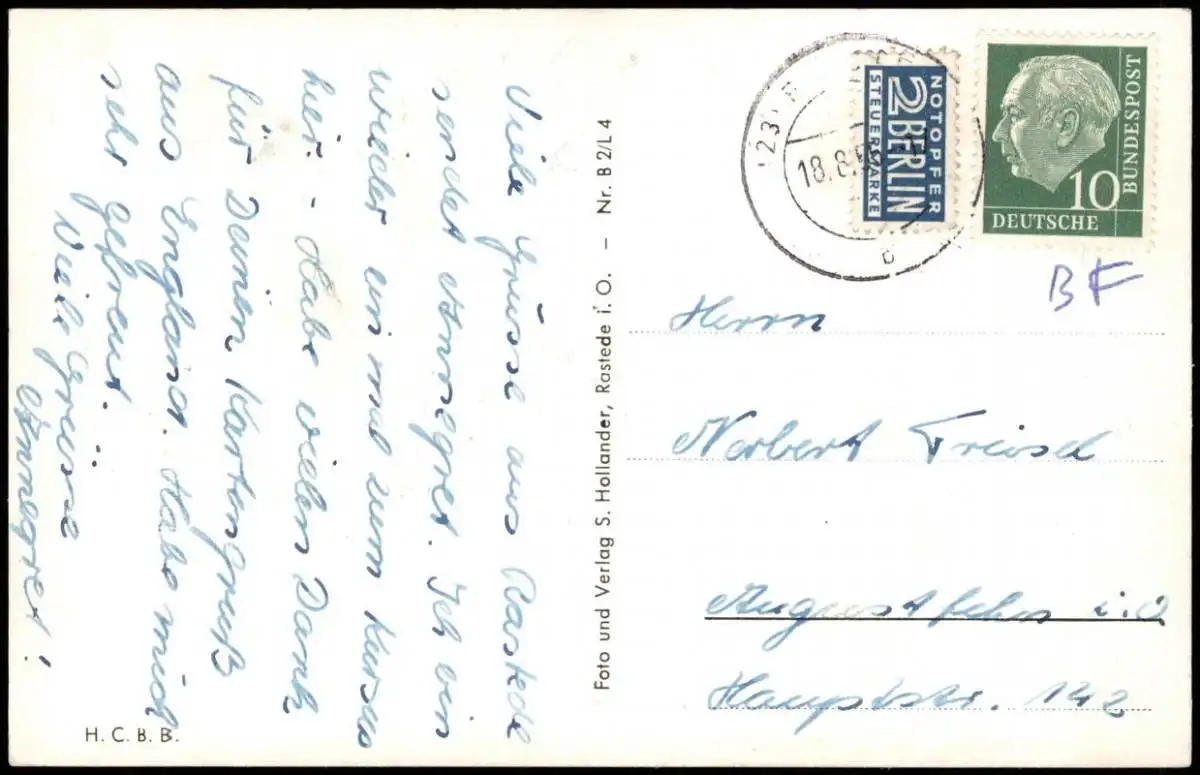 Viele Grüsse aus Rastede
sendet Annegret. Ich bin
wieder einmal zum Kursus
hier. - Habe vielen Dank
für Deinen Kartengruß
aus England. Habe mich
sehr gefreut.
Viele Grüsse
Annegret!
H. C. B. B.
Foto und Verlag S. Hollander, Rastede i. O. – Nr. B 2/L 4
(23)
18.8.
b
NOTOPFER
2 BERLIN
STEUERMARKE
10
DEUTSCHE
BUNDESPOST
BF
Herrn
Norbert
Augustfehn i. O
Hauptstr. 142